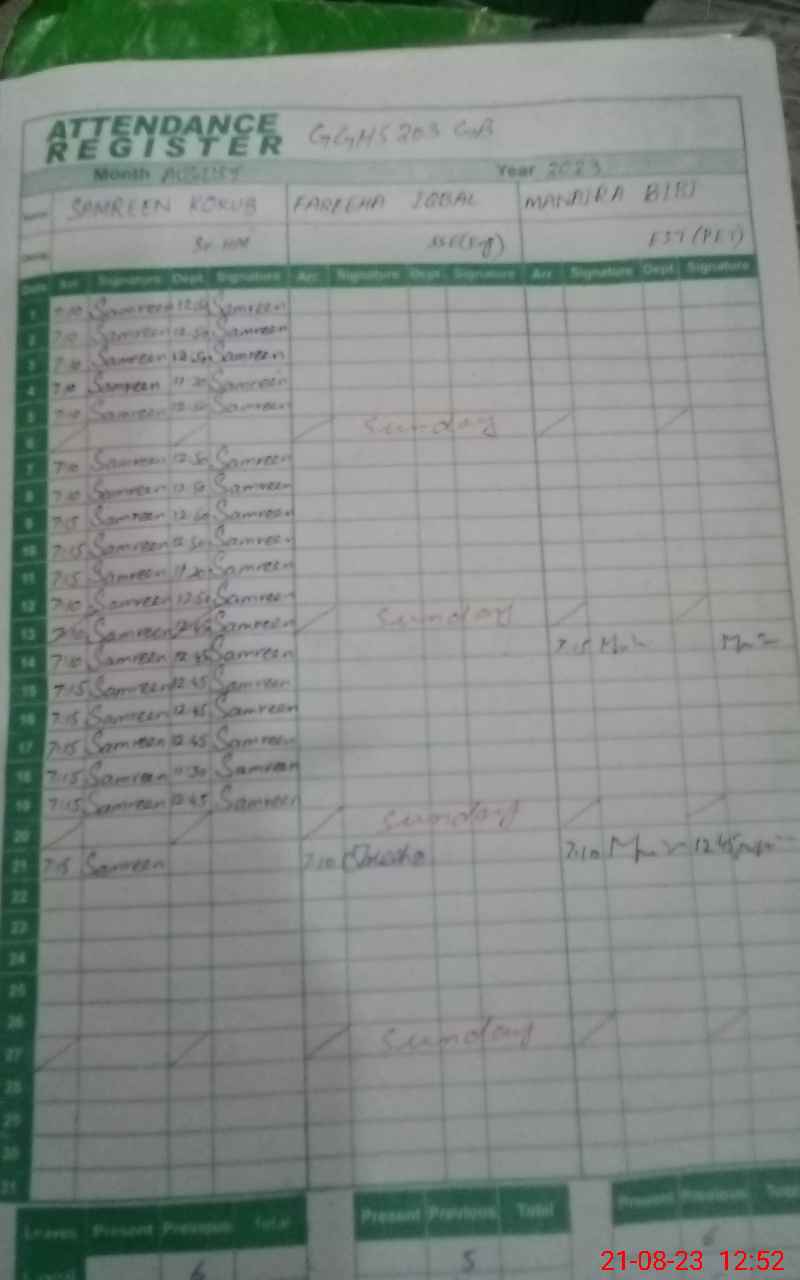 ATTENDANCE
REGISTER GGHS 203 GB
Month AUGUST Year 2023
Name SAMREEN KOKUB FAREEHA IQBAL MANAIRA BIBI
Sr. HM SSE(Eng) EST (PET)
Date Arr Signature Dept. Signature Arr. Signature Dept Signature Arr Signature Dept. Signature
1 7:10 Samreen 12:50 Samreen
2 7:10 Samreen 12:50 Samreen
3 7:10 Samreen 12:50 Samreen
4 7:10 Samreen 11:30 Samreen
5 7:10 Samreen 12:50 Samreen
6 Sunday
7 7:10 Samreen 12:50 Samreen
8 7:10 Samreen 12:50 Samreen
9 7:15 Samreen 12:50 Samreen
10 7:15 Samreen 12:50 Samreen
11 7:15 Samreen 11:30 Samreen
12 7:10 Samreen 12:50 Samreen
13 7:10 Samreen 12:45 Samreen Sunday
14 7:10 Samreen 12:45 Samreen 7:15
15 7:15 Samreen 12:45 Samreen
16 7:15 Samreen 12:45 Samreen
17 7:15 Samreen 12:45 Samreen
18 7:15 Samreen 11:30 Samreen
19 7:15 Samreen 12:45 Samreen
20 Sunday
21 7:15 Samreen 7:10 7:10 12:45
22
23
24
25
26
27 Sunday
28
29
30
31
Leaves Present Previous Total Present Previous Total Present Previous Total
6 5 6
21-08-23 12:52